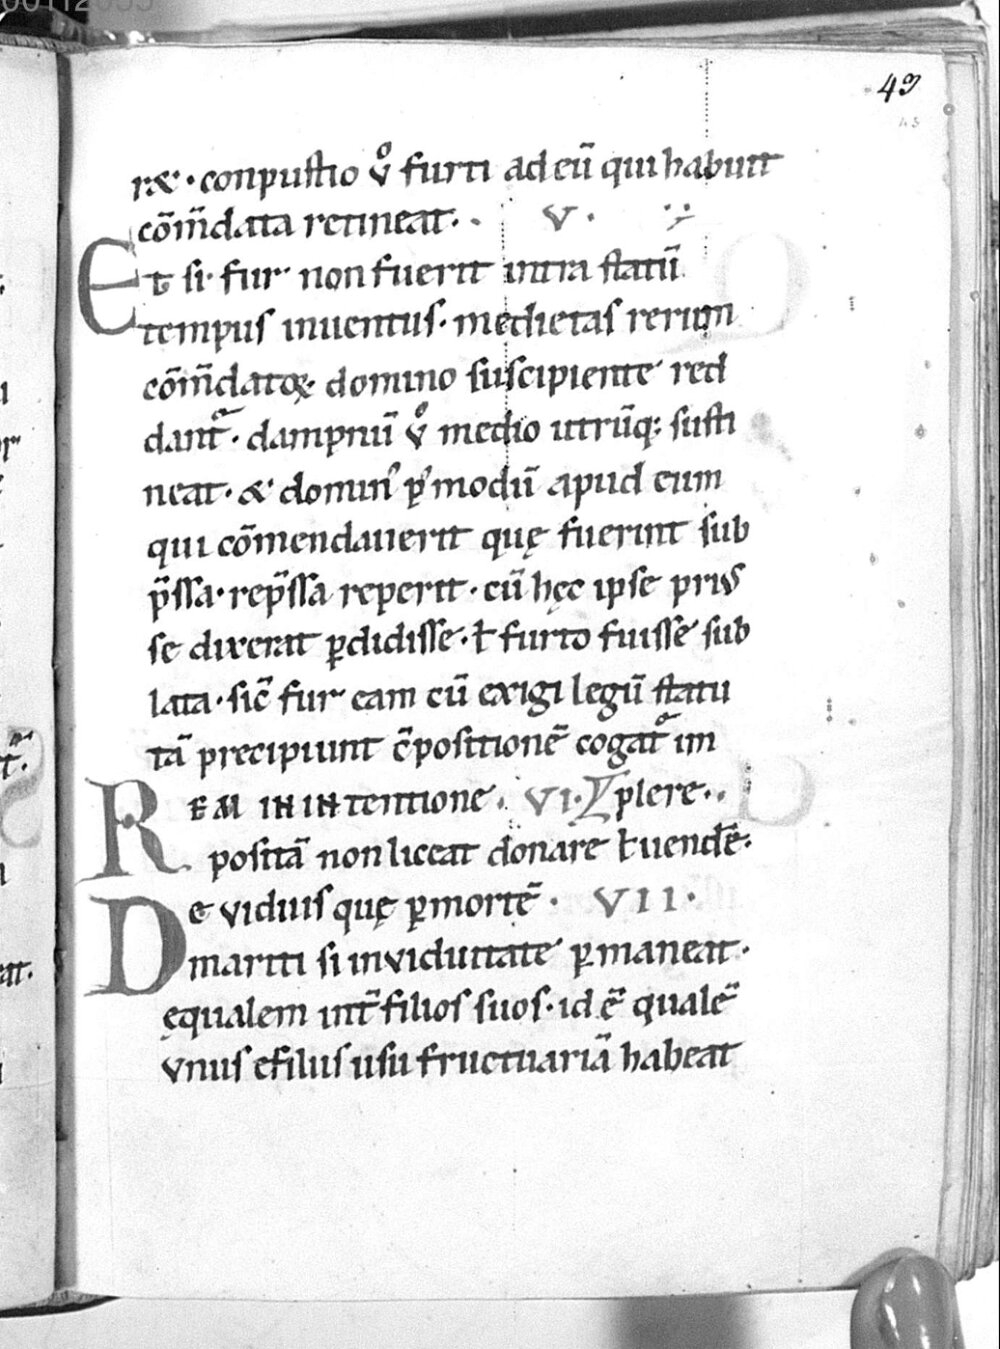 49
r&· conpustio v̊ furti ad eū qui habuit
cōm̄data retineat· V·
Et si fur non fuerit intra statū
tempus inuentus· medietas rerum
cōm̄datoꝝ· domino suscipiente red
dant᷑· dampnū v̊ medio utrūq; susti
neat· & domin᾿ p᾿modū apud eum
qui cōmendauerit quę fuerint sub
p̄ssa· rep̄ssa reperit· cū hęc ipse prius
se dixerat ꝑdidisse· ł furto fuisse sub
lata· sic̄ fur eam cū exigi legū statu
tā precipiunt c̄positionē cogat᷑ im
REM IN INtentione· VI· plere·
positā non liceat donare ł uendē·
De viduis quę ꝑmortē· VII·
mariti si inviduitate ꝑmaneat·
ęqualem int̄ filios suos· id ē qualē
vnus ef filus usu fructuariā habeat